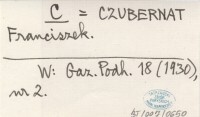 C = CZUBERNAT
Franciszek.
W: Gaz. Podh. 18 (1930),
nr 2.